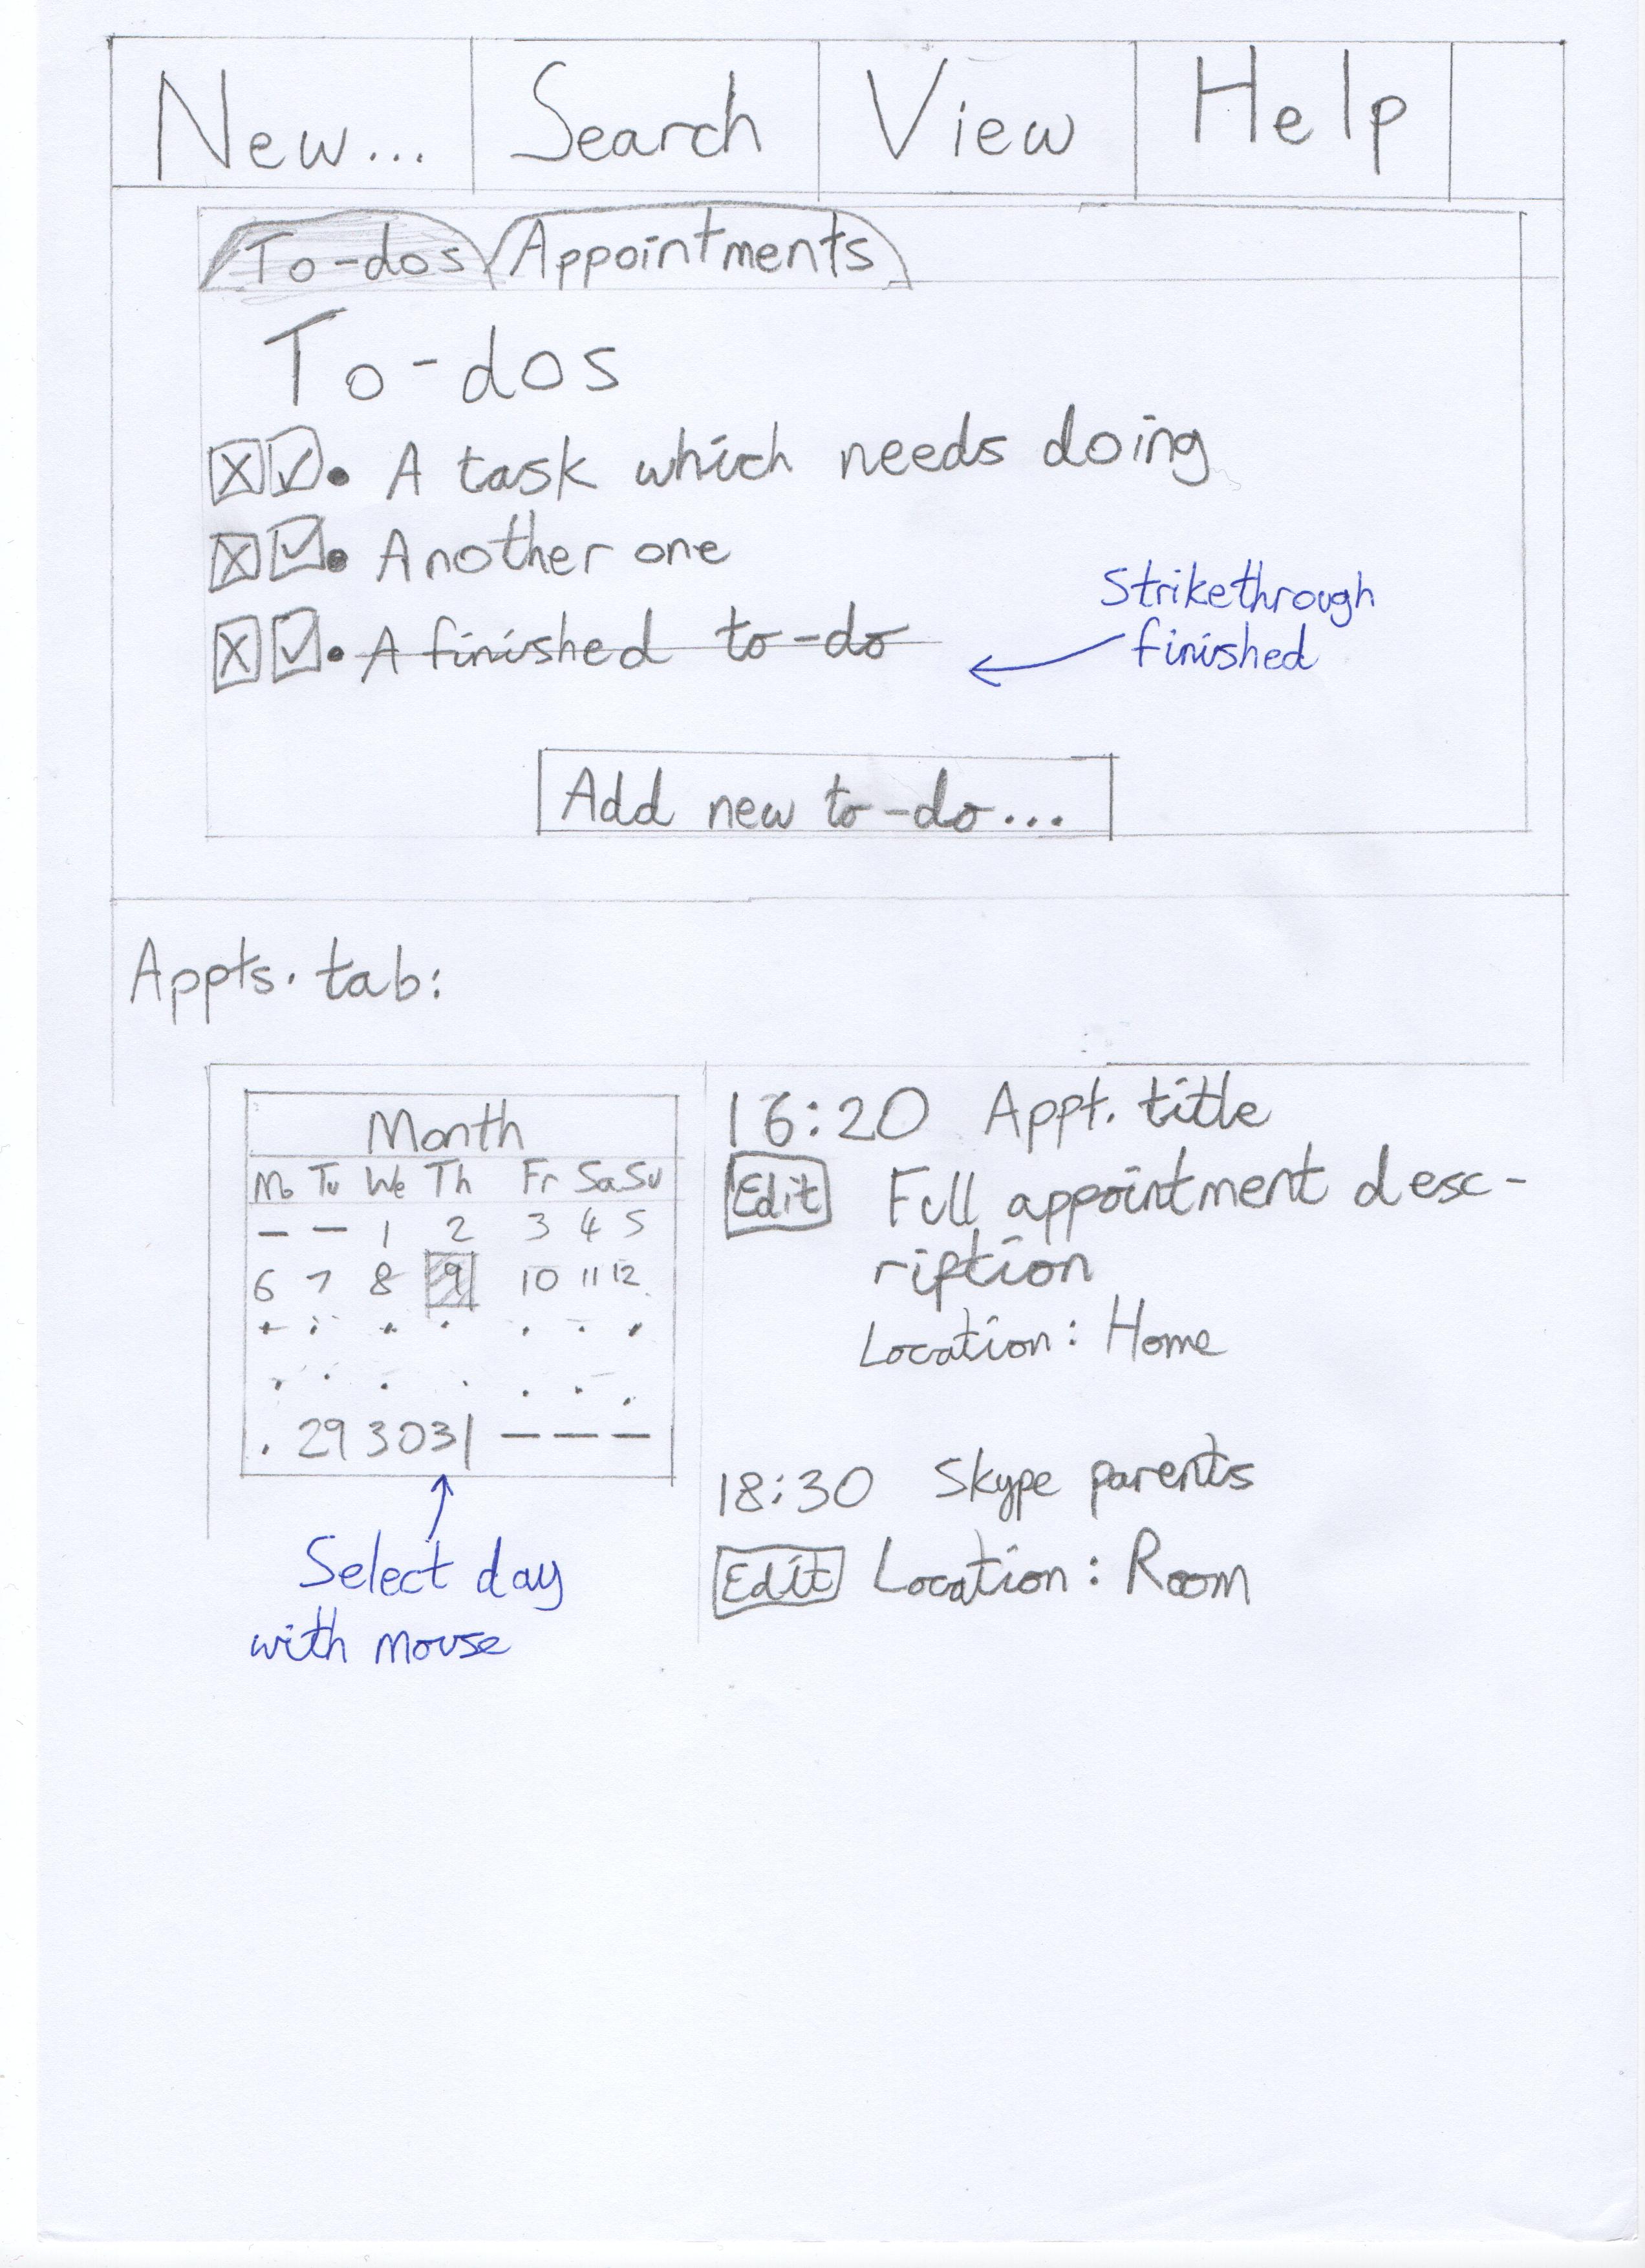 New... Search View Help
To-dos Appointments
To-dos
X ✓ • A task which needs doing
X ✓ • Another one
X ✓ • A finished to-do
Strikethrough
finished
Add new to-do...
Appts. tab:
Month
Mo Tu We Th Fr Sa Su
– – 1 2 3 4 5
6 7 8 9 10 11 12
. . . . . . .
. . . . . . .
. 29 30 31 – – –
Select day
with mouse
16:20 Appt. title
Edit Full appointment desc-
ription
Location: Home
18:30 Skype parents
Edit Location: Room